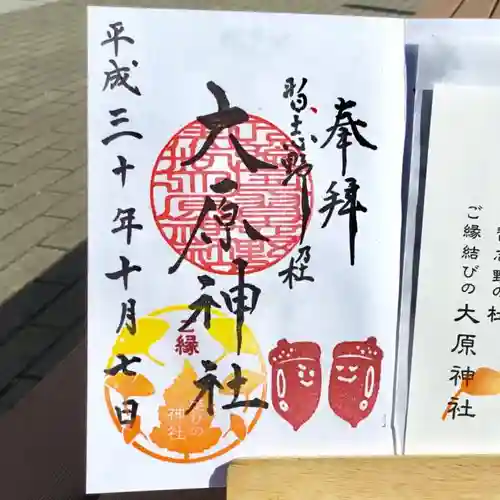 奉拝
習志野乃杜
大原神社
平成三十年十月七日
ご縁
むすびの
神社
習志野の杜
ご縁結びの
大原神社